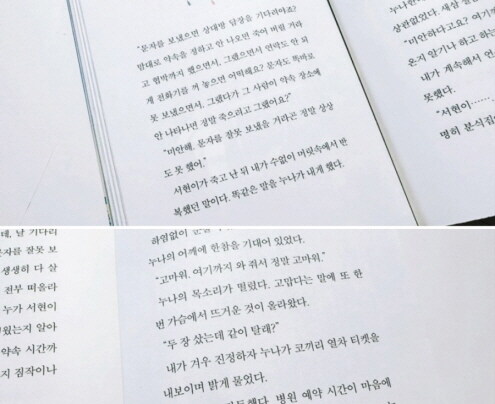 "문자를 보냈으면 상대방 답장을 기다려야죠?
맘대로 약속을 정하고 안 나오면 죽어 버릴 거라
고 협박까지 했으면서, 그랬으면서 연락도 안 되
게 전화기를 꺼 놓으면 어떡해요? 문자도 똑바로
못 보냈으면서, 그랬다가 그 사람이 약속 장소에
안 나타나면 정말 죽으려고 그랬어요?"
"미안해. 문자를 잘못 보냈을 거라곤 정말 상상
도 못 했어."
서현이가 죽고 난 뒤 내가 수없이 머릿속에서 반
복했던 말이다. 똑같은 말을 누나가 내게 했다.
누나한
상관없었다. 세상
"미안하다고요? 여기
온지 알기나 하고 하는
내가 계속해서 언
못했다.
"서현이……
명히 분식집
데, 날 기다리
문자를 잘못 보
생생히 다 살
전부 떠올라
누가 서현이
웠는지 알아
약속 시간까
지 짐작이나
하염없이
누나의 어깨에 한참을 기대어 있었다.
"고마워. 여기까지 와 줘서 정말 고마워."
누나의 목소리가 떨렸다. 고맙다는 말에 또 한
번 가슴에서 뜨거운 것이 올라왔다.
"두 장 샀는데 같이 탈래?"
내가 겨우 진정하자 누나가 코끼리 열차 티켓을
내보이며 밝게 물었다.
병원 예약 시간이 마음에